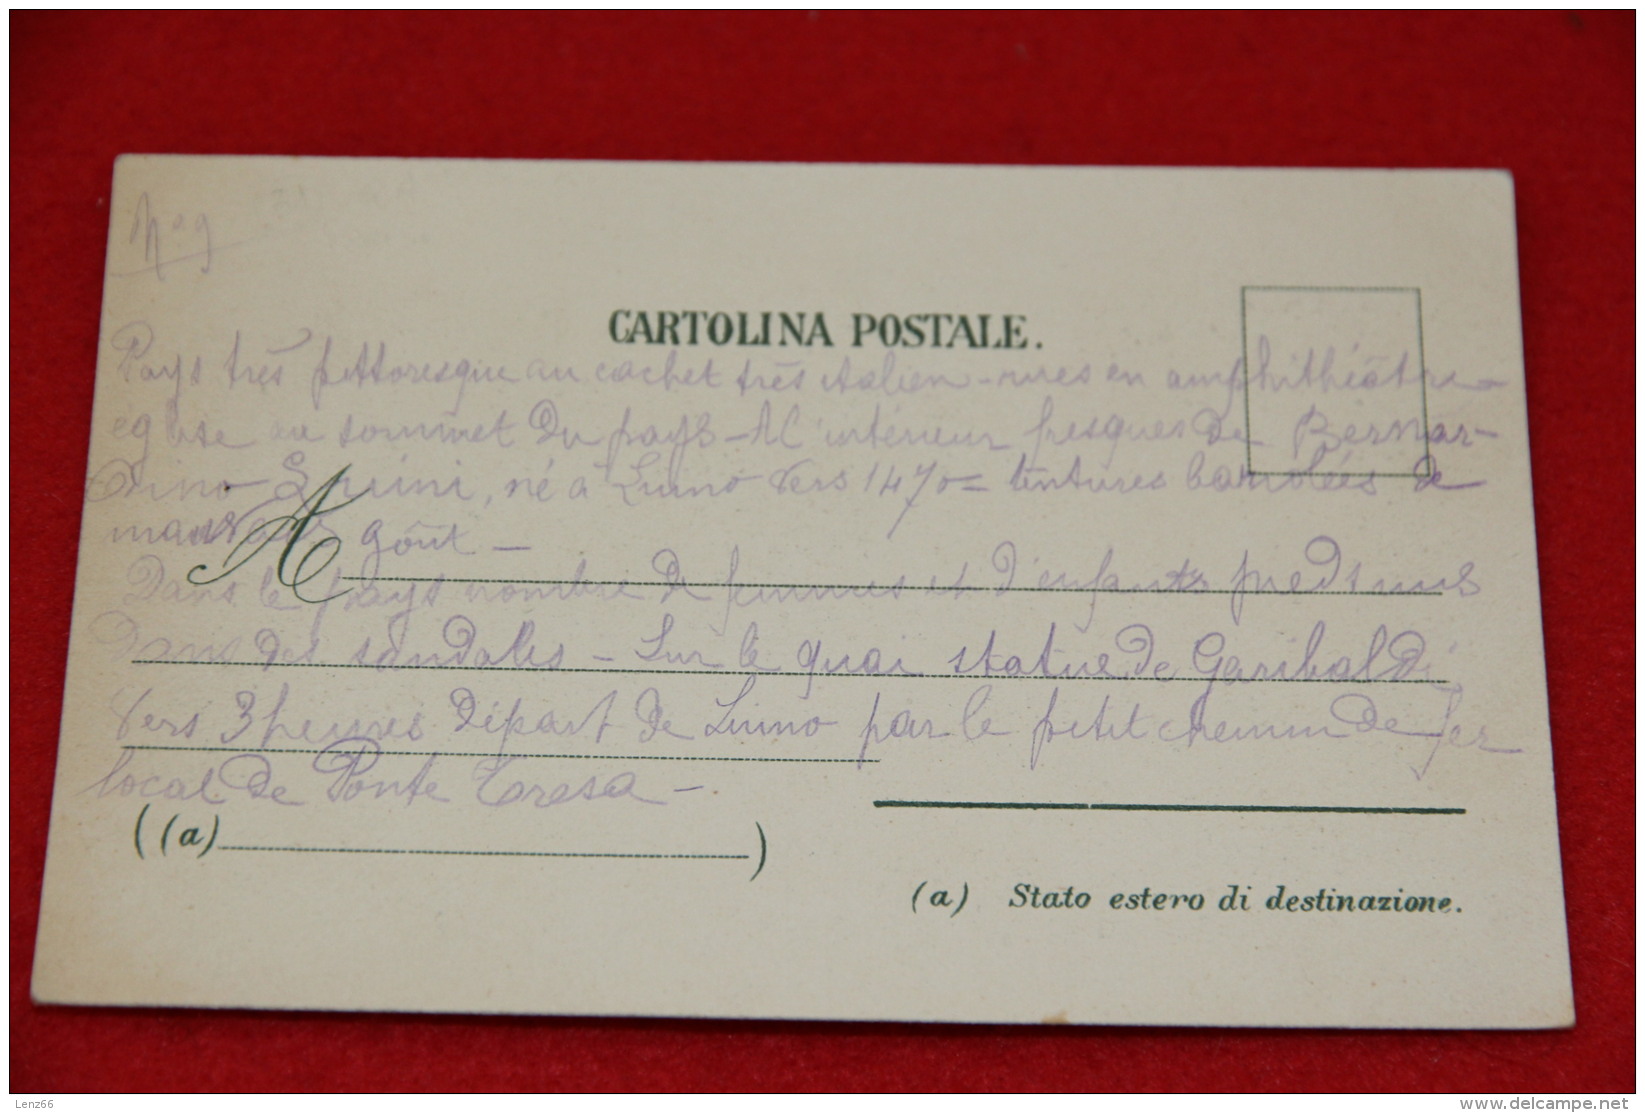 No 9
CARTOLINA POSTALE.
Pays très pittoresque au cachet très italien - rues en amphithéâtre -
église au sommet du pays - A l'intérieur fresques de Bernar-
dino Luini, né à Luino vers 1470 = tentures bariolées de
mauvais goût -
A
Dans le pays nombre de femmes et d'enfants pieds nus
dans des sandales - Sur le quai statue de Garibaldi
Vers 3 heures départ de Luino par le petit chemin de fer
local de Ponte Tresa -
( (a) )
(a) Stato estero di destinazione.
Lenz66
www.delcampe.net